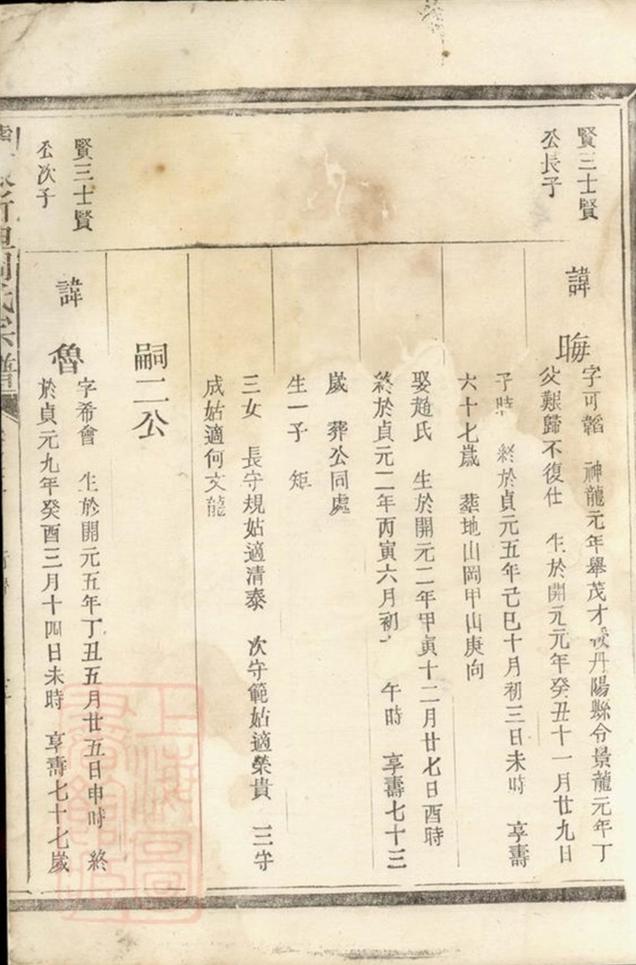 賢三士賢
公長子
諱
晦
字可韜　神龍元年舉茂才授丹陽縣令景龍元年丁
父艱歸不復仕　生於開元元年癸丑十一月廿九日
子時　終於貞元五年己巳十月初三日未時　享壽
六十七歲　葬地山岡甲山庚向
娶趙氏　生於開元二年甲寅十二月廿七日酉時
終於貞元二年丙寅六月初　午時　享壽七十三
歲　葬公同處
生一子　矩
三女　長守規姑適清泰　次守範姑適榮貴　三守
成姑適何文龍
嗣二公
賢三士賢
公次子
諱
魯
字希會　生於開元五年丁丑五月廿五日申時　終
於貞元九年癸酉三月十四日未時　享壽七十七歲
周氏宗譜
上海圖書館藏